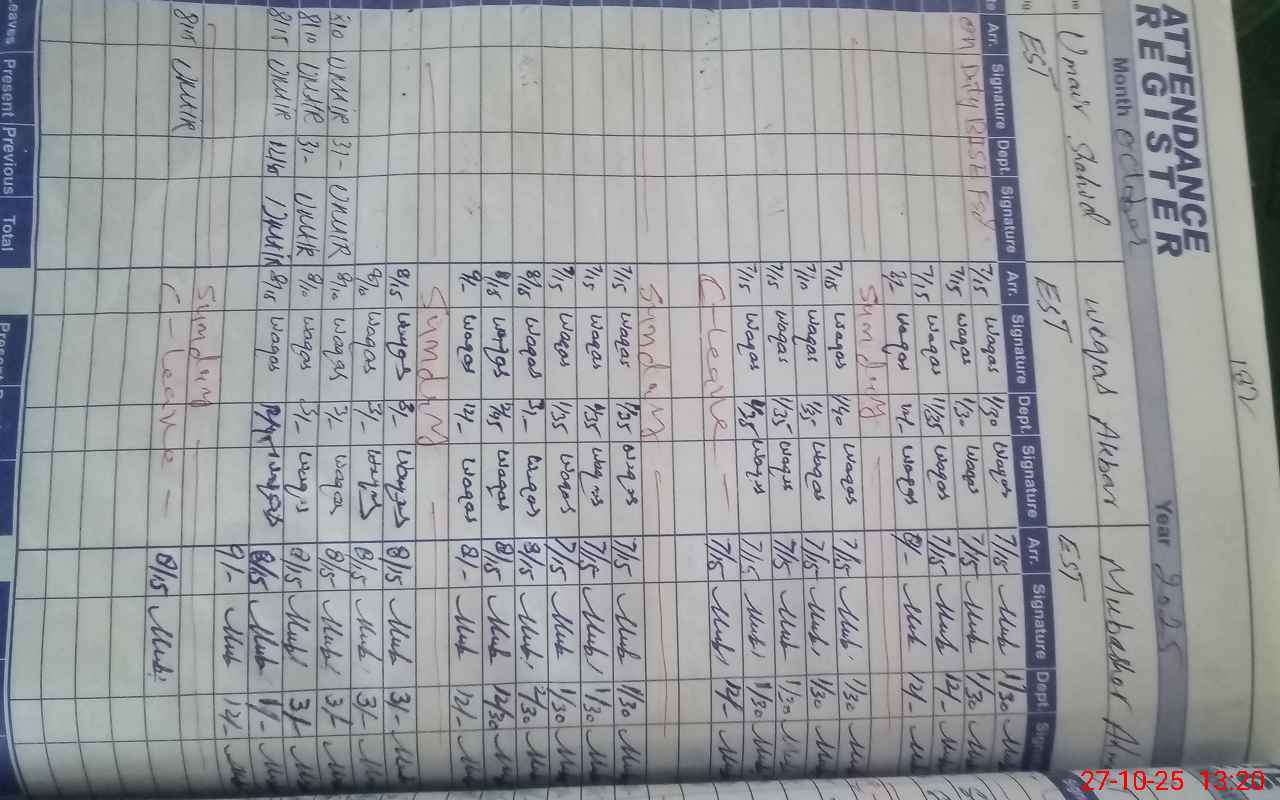 182
ATTENDANCE
REGISTER
Month October Year 2025
Umair Shahid Waqas Akbar Mubashar
EST EST EST
Arr. Signature Dept. Signature Arr. Signature Dept. Signature Arr. Signature Dept.
On Duty BISE 7/15 Waqas 1/30 Waqas 7/15 Mub 1/30
7/15 Waqas 1/30 Waqas 7/15 Mub 1/30
7/15 Waqas 1/35 Waqas 7/15 Mub 12/-
8/- Waqas 12/- Waqas 8/- Mub 12/-
Sunday
7/15 Waqas 1/40 Waqas 7/15 Mub 1/30
7/10 Waqas 1/35 Waqas 7/15 Mub 1/30
7/15 Waqas 1/35 Waqas 7/15 Mub 1/30
7/15 Waqas 1/35 Waqas 7/15 Mub 1/30
C-leave 7/15 Mub 12/-
Sunday
7/15 Waqas 1/35 Waqas 7/15 Mub 1/30
7/15 Waqas 1/35 Waqas 7/15 Mub 1/30
7/15 Waqas 1/35 Waqas 7/15 Mub 1/30
8/15 Waqas 3/- Waqas 8/15 Mub 2/30
8/15 Waqas Waqas 8/15 Mub 12/30
9/- Waqas 12/- Waqas 8/- Mub 12/-
Sunday
8/15 Waqas 3/- Waqas 8/15 Mub 3/-
8/10 Waqas 3/- Waqas 8/15 Mub 3/-
UMAIR 3/- UMAIR 8/10 Waqas 3/- Waqas 8/15 Mub 3/-
8/10 UMAIR 3/- UMAIR 8/10 Waqas 3/- Waqas 8/15 Mub 3/-
8/15 UMAIR UMAIR 8/15 Waqas Waqas 8/15 Mub 1/-
9/- Mub 12/-
Sunday
8/15 UMAIR C-leave 8/15 Mub
Leaves Present Previous Total
27-10-25 13:20